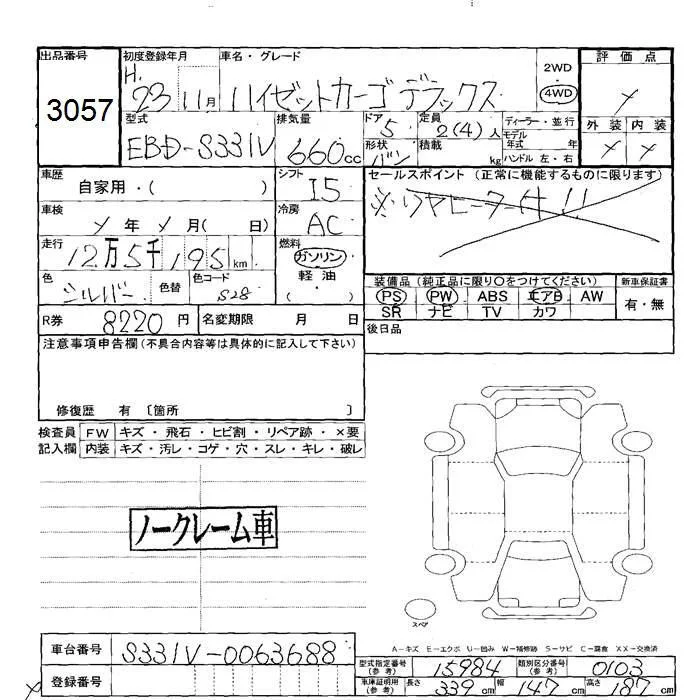 出品番号 初度登録年月 車名・グレード 評価点
3057 H. 23 11月 ハイゼットカーゴ デラックス 2WD 4WD
型式 排気量 ドア 定員 ディーラー・並行 外装 内装
EBD-S331V 660cc 5 2(4)人 モデル年式 年
形状 バン 積載 kg ハンドル 左・右
車歴 自家用・( ) シフト I5 セールスポイント (正常に機能するものに限ります)
車検 年 月( 日) 冷房 AC
走行 12万5千195km 燃料 ガソリン 軽油 ( )
色 シルバー 色替 色コード S28
装備品 (純正品に限り○をつけてください) 新車保証書
PS PW ABS エアB AW 有・無
SR ナビ TV カワ
R券 8220円 名変期限 月 日 後日品
注意事項申告欄(不具合内容等は具体的に記入して下さい)
修復歴 有 〔箇所 〕
検査員 FW キズ・飛石・ヒビ割・リペア跡・×要
記入欄 内装 キズ・汚レ・コゲ・穴・スレ・キレ・破レ
ノークレーム車
スペア
A-キズ E-エクボ U-凹み W-補修跡 S-サビ C-腐食 XX-交換済
車台番号 S331V-0063688
型式指定番号(参考) 15984 類別区分番号(参考) 0103
登録番号
車庫証明用(参考) 長さ 339cm 幅 147cm 高さ 187cm